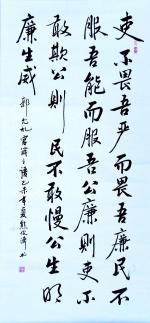 吏不畏吾严而畏吾廉民不
服吾能而服吾公廉则吏不
敢欺公则民不敢慢公生明
廉生威
郭允礼官箴 乙未年夏